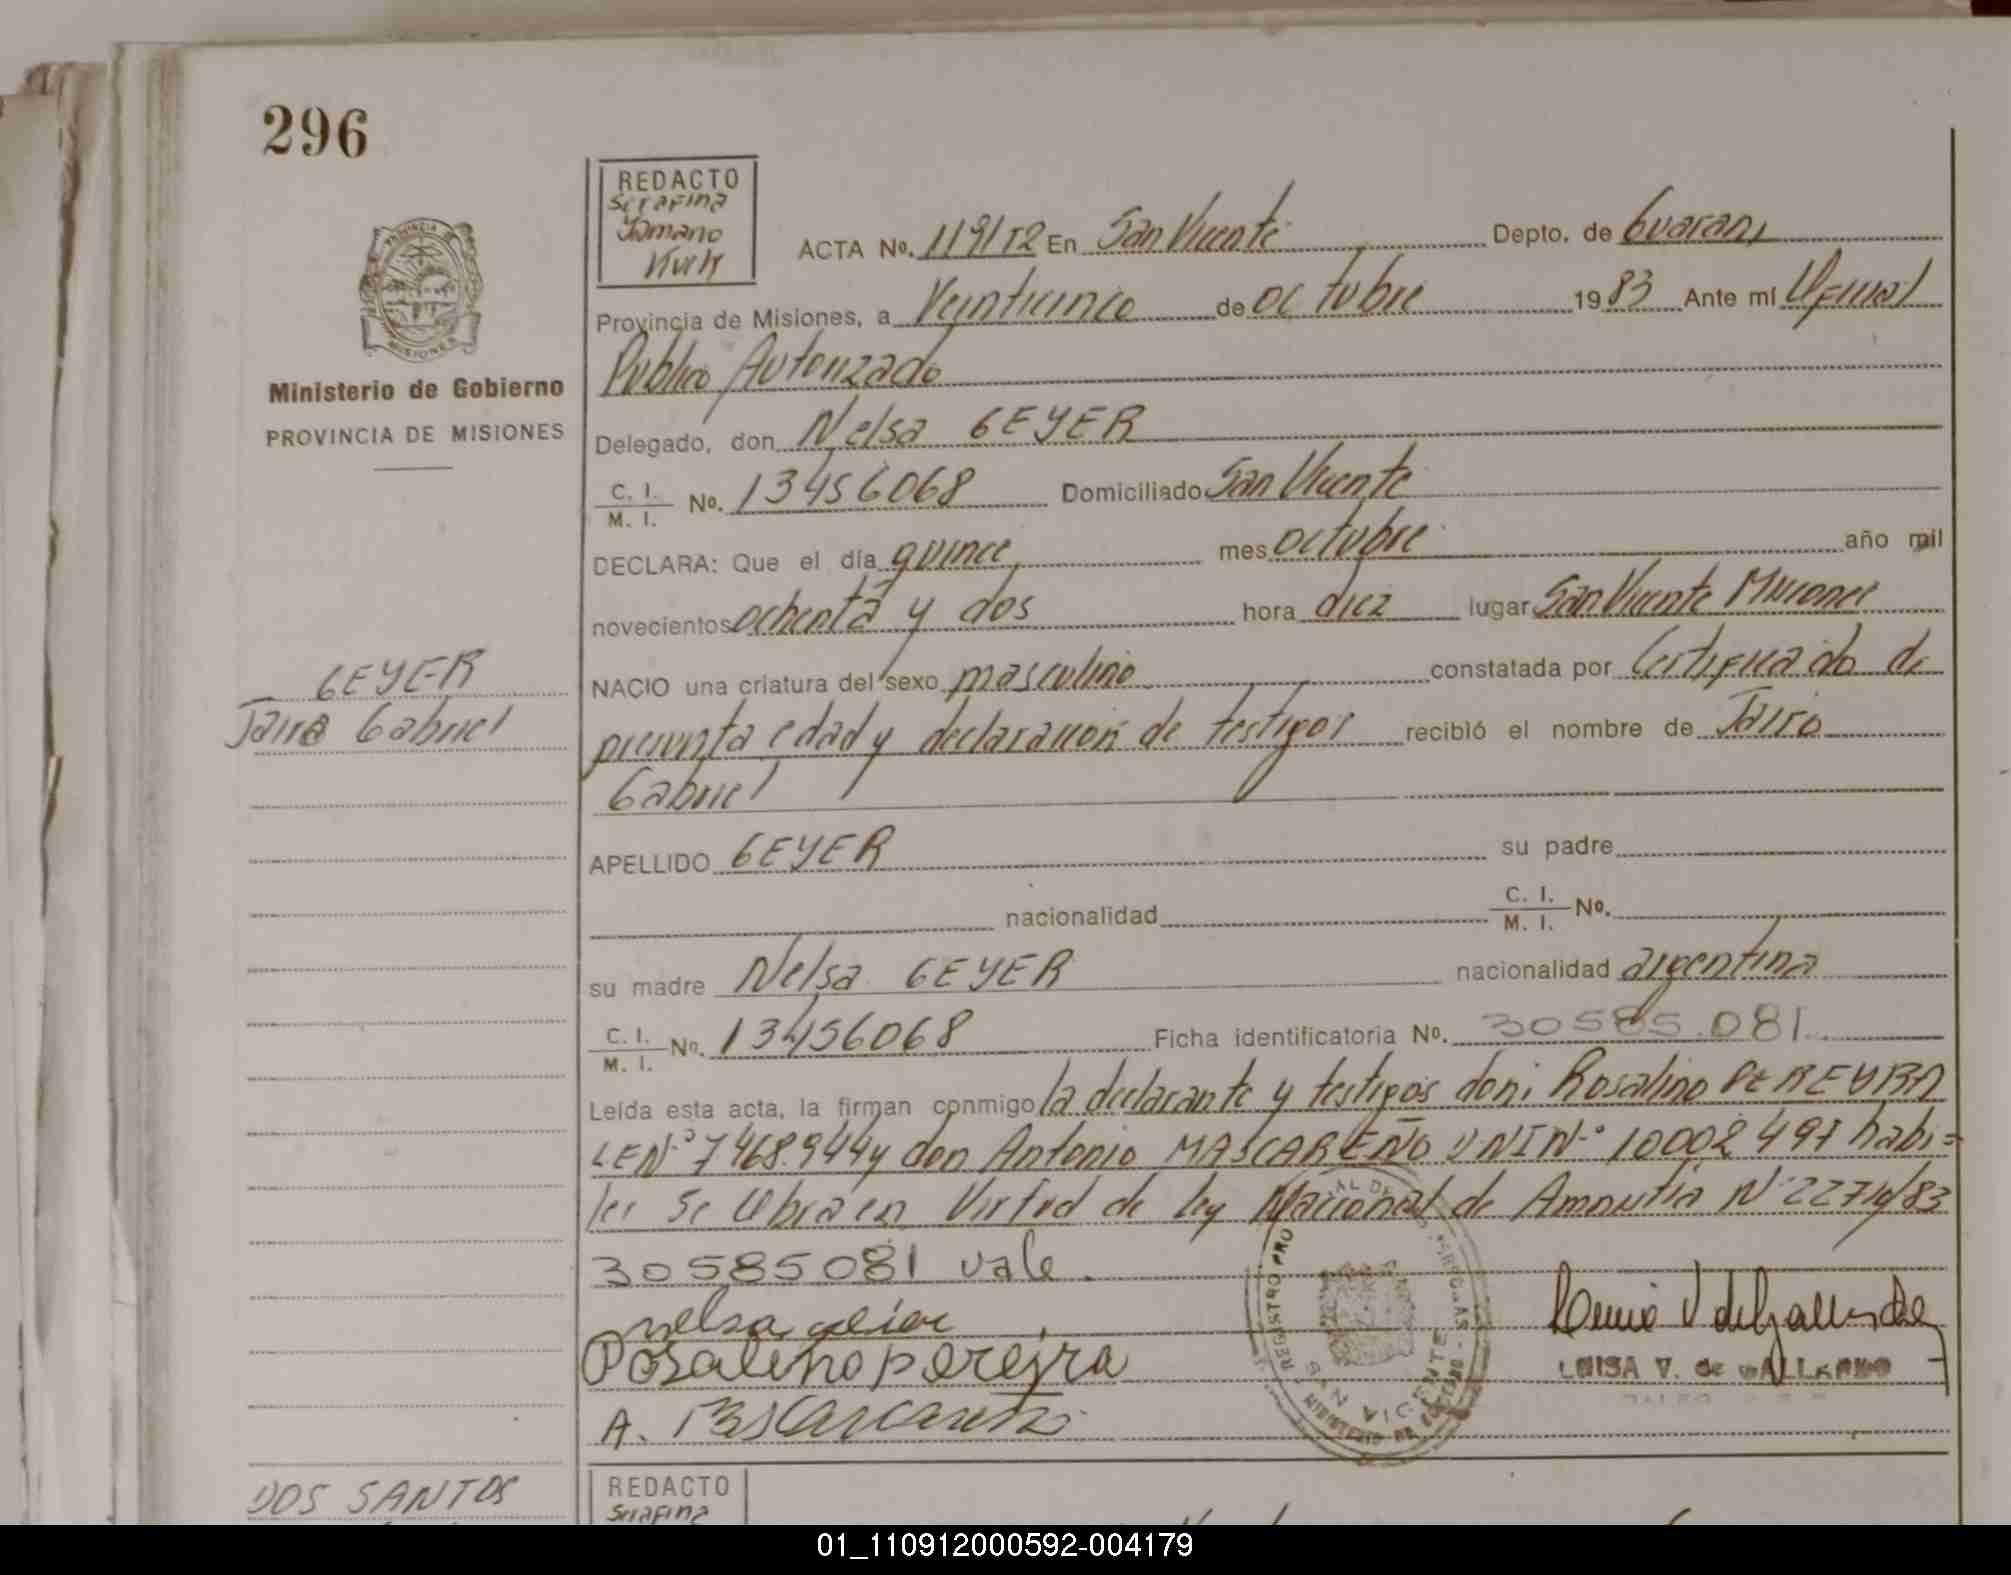 296
REDACTO
Serafina
Kurk
ACTA No. 119/T2 En San Vicente Depto. de Guarani
Provincia de Misiones, a Veinticinco de octubre 1983 Ante mí Oficial
Publico Autorizado
MISIONES
Ministerio de Gobierno
PROVINCIA DE MISIONES
Delegado, don Nelsa GEYER
C. I.
M. I. No. 13456068 Domiciliado San Vicente
DECLARA: Que el día quince mes octubre año mil
novecientos ochenta y dos hora diez lugar San Vicente Misiones
NACIO una criatura del sexo masculino constatada por Certificado de
presunta edad y declaracion de testigos recibió el nombre de Jairo
Gabriel
GEYER
Jairo Gabriel
APELLIDO GEYER su padre
nacionalidad C. I.
M. I. No.
su madre Nelsa GEYER nacionalidad argentina
C. I.
M. I. No. 13456068 Ficha identificatoria No. 30585.081
Leída esta acta, la firman conmigo la declarante y testigos don: Rosalino PEREYRA
LE Nº 7468944 y don Antonio MASCAREÑO DNI Nº 10002497 habi=
les Se labra en Virtud de ley Nacional de Amnistia Nº 2271
30585081 vale
Rosalino pereira
LUISA V. de GALLARDO
SAN VICENTE
DOS SANTOS
REDACTO
Serafina
01_110912000592-004179